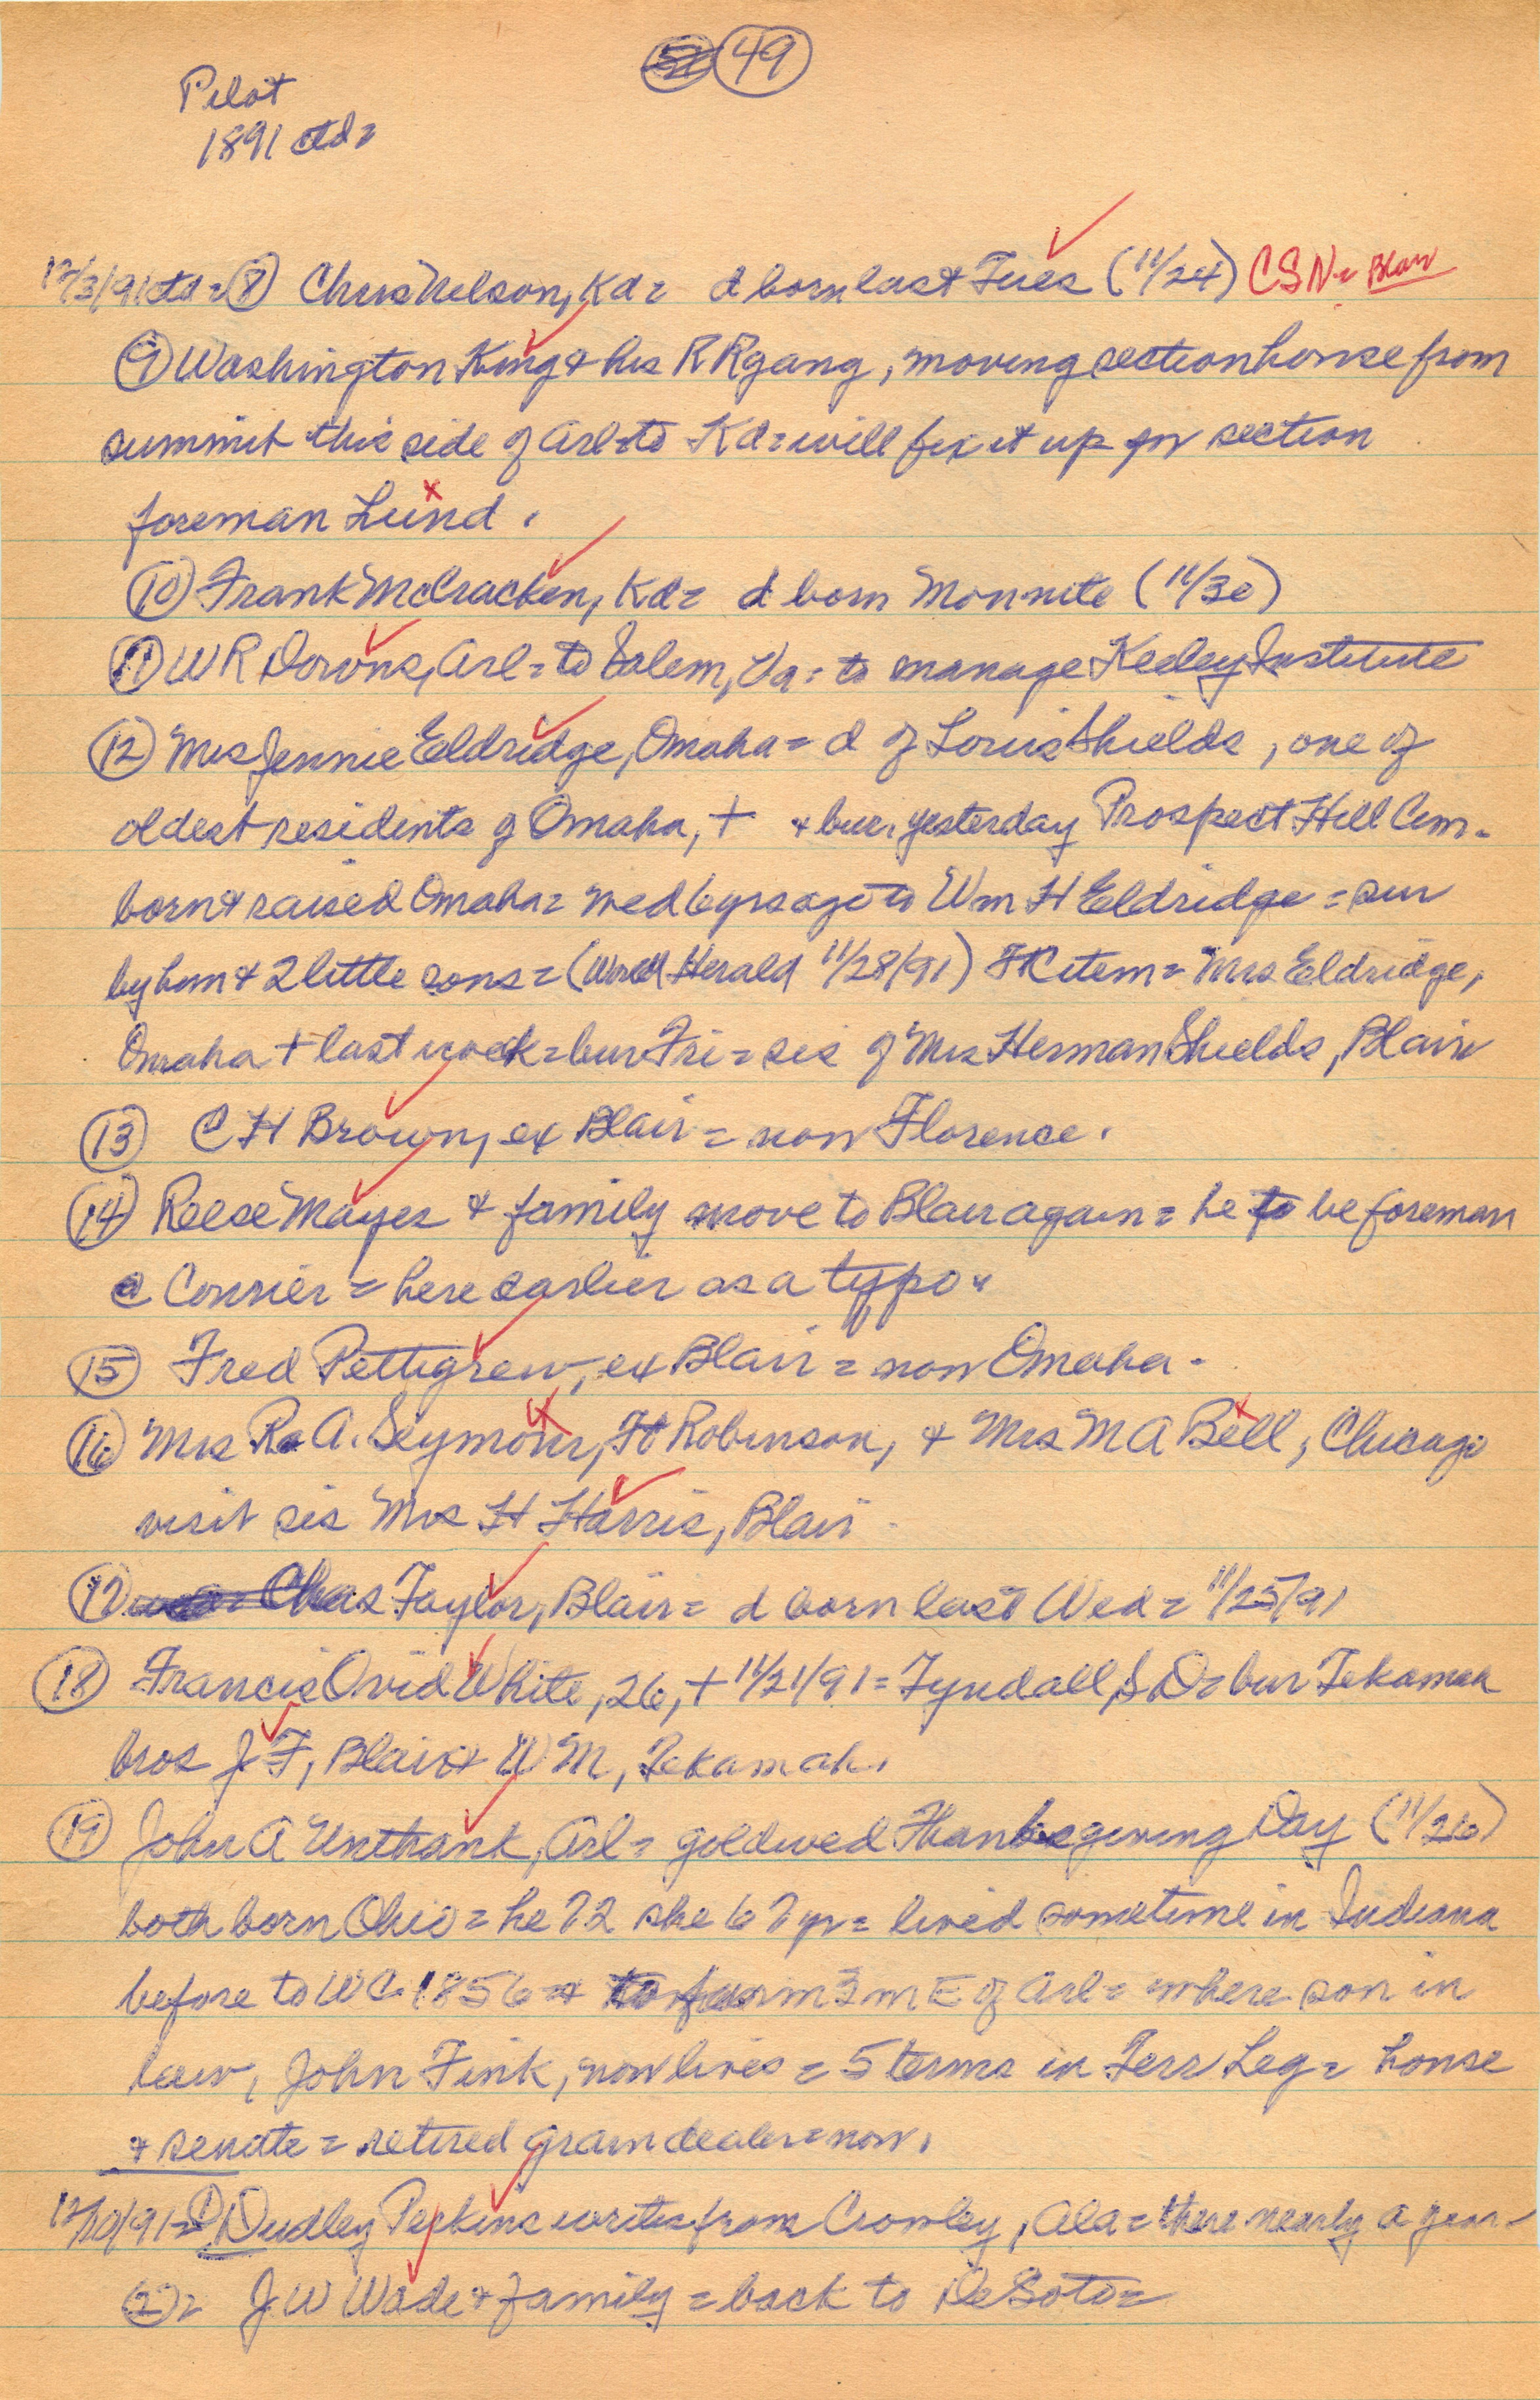 49
Pilot
1891 ctd=
12/3/91 ctd = (8) Chris Nelson, Kd = d born last Tues (11/24) CSN = Blair
(9) Washington King & his RR gang, moving section house from
summit this side of Arl = to Kd = will fix it up for section
foreman Lund.
(10) Frank McCracken, Kd = d born Mon nite (11/30)
(11) W R Downs, Arl = to Salem, Va = to manage Keeley Institute
(12) Mrs Jennie Eldridge, Omaha = d of Louis Shields, one of
oldest residents of Omaha, + & bur. yesterday Prospect Hill Cem -
born & raised Omaha = wed 6 yrs ago to Wm H Eldridge = sur
by him & 2 little sons = (World Herald 11/28/91) item = Mrs Eldridge,
Omaha + last week = bur Fri = sis of Mrs Herman Shields, Blair
(13) C H Brown, ex Blair = now Florence.
(14) Reese Mayes & family move to Blair again = he to be foreman
@ Courier = here earlier as a typo.
(15) Fred Pettigrew, ex Blair = now Omaha -
(16) Mrs R A. Seymour, Ft Robinson, & Mrs M A Bell, Chicago
visit sis Mrs H Harris, Blair -
(17) Chas Taylor, Blair = d born last Wed = 11/25/91
(18) Francis Ovid White, 26, + 11/21/91 = Tyndall, S D = bur Tekamah
bros J F, Blair & W M, Tekamah.
(19) John A Unthank, Arl = gold wed Thanksgiving Day (11/26)
both born Ohio = he 72 she 67 yr = lived sometime in Indiana
before to WC 1856 = to farm 3 m E of Arl = where son in
law, John Fink, now lives = 5 terms in Terr Leg = house
& senate = retired grain dealer = now.
12/10/91 = (1) Dudley Perkins writes from Crowley, Ala = there nearly a year -
(2) = J W Wade & family = back to DeSoto =